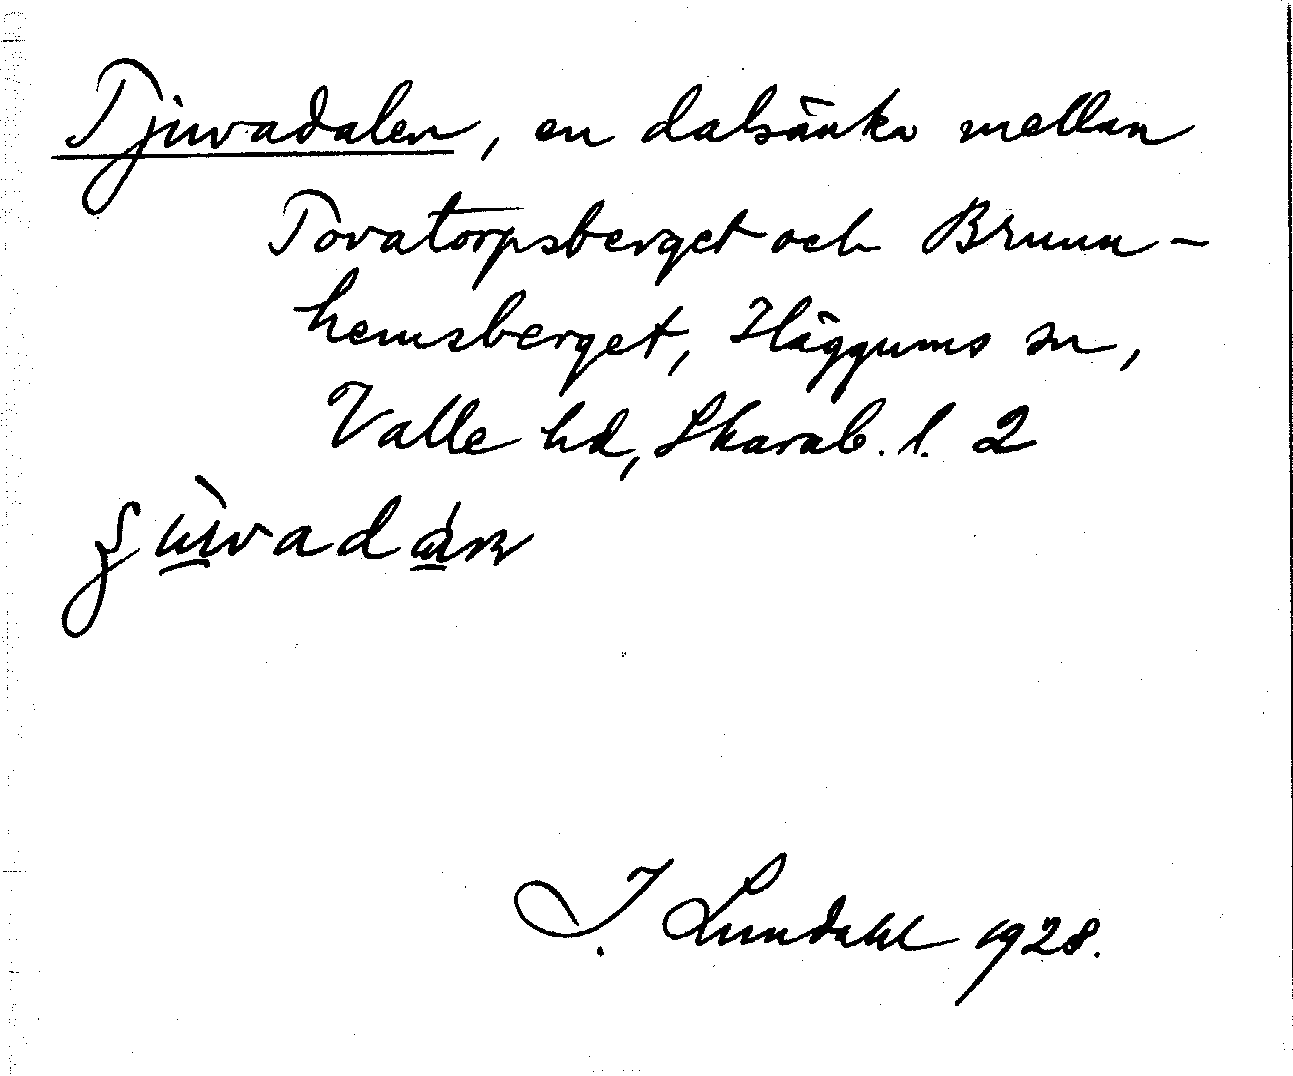 Tjuvadalen, en dalsänka mellan
Tovatorpsberget och Brunn-
hemsberget, Häggums sn,
Valle hd, Skarab. l. 2
I. Lundahl 1928.